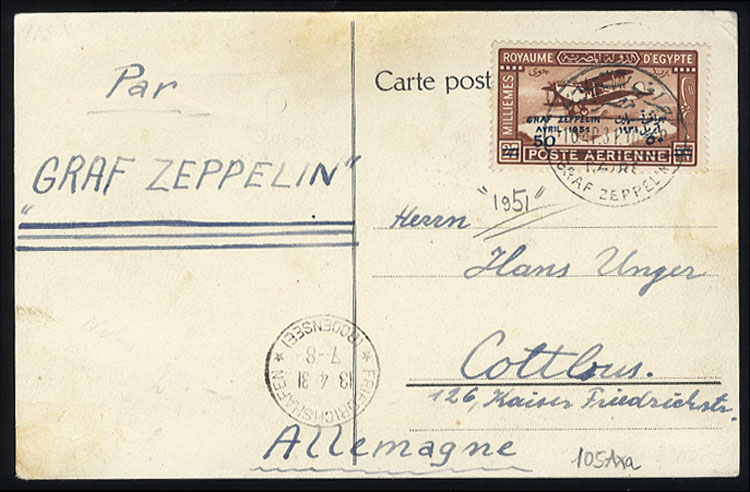 Par
"GRAF ZEPPELIN"
Carte post
ROYAUME D'EGYPTE
MILLIEMES
GRAF ZEPPELIN
AVRIL 1951
50
27
POSTE AERIENNE
GRAF ZEPPELIN
"1951"
Herrn
Hans Unger
Cottbus.
126, Kaiser Friedrichstr.
Allemagne
FRIEDRICHSHAFEN
(BODENSEE)
13 4 31
7-8
105Axa